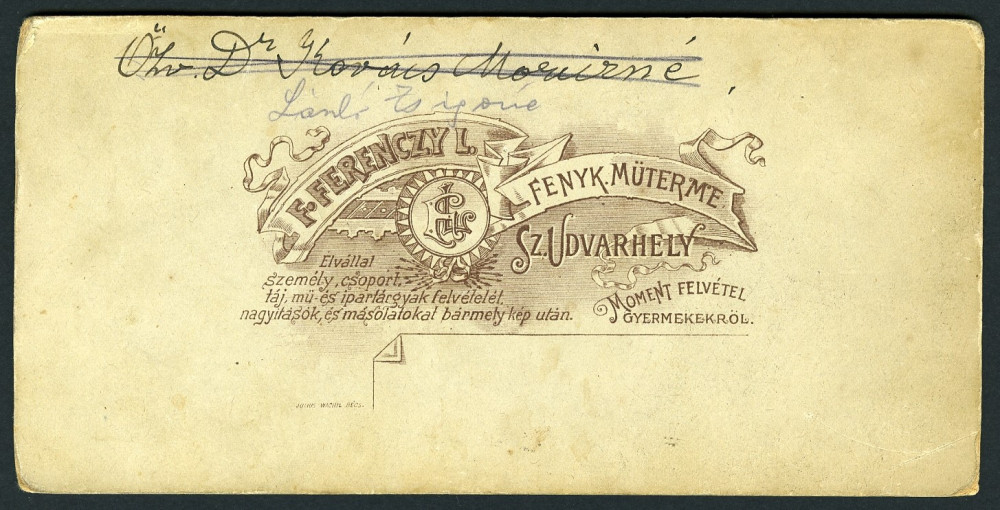 Özv. Dr Kovács Móricné
László Zsigáné
F. FERENCZY L.
FENYK. MŰTERME.
SZ. UDVARHELY
Elvállal
személy, csoport,
táj, mű- és ipartárgyak felvételét,
nagyitások, és másolatokat bármely kép után.
MOMENT FELVÉTEL
GYERMEKEKRŐL.
BÉCS.